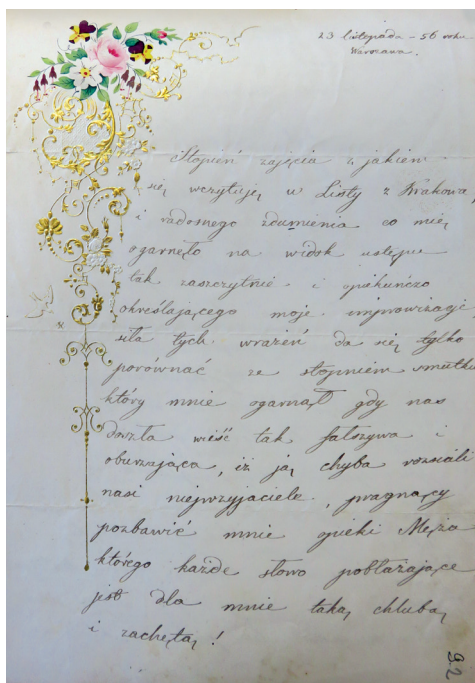 23 listopada - 56 roku
Warszawa.
Stopień zajęcia z jakiem
się wczytuję w Listy z Krakowa,
i radosnego zdumienia co mię
ogarnęło na widok ustępu
tak zaszczytnie i opiekuńczo
określającego moje improwizacje
siła tych wrażeń da się tylko
porównać ze stopniem smutku
który mnie ogarnął gdy nas
doszła wieść tak fałszywa i
oburzająca, iż ją chyba rozsiali
nasi nieprzyjaciele, pragnący
pozbawić mnie opieki Męża
którego każde słowo pobłażające
jest dla mnie taką chlubą
i zachętą!
92